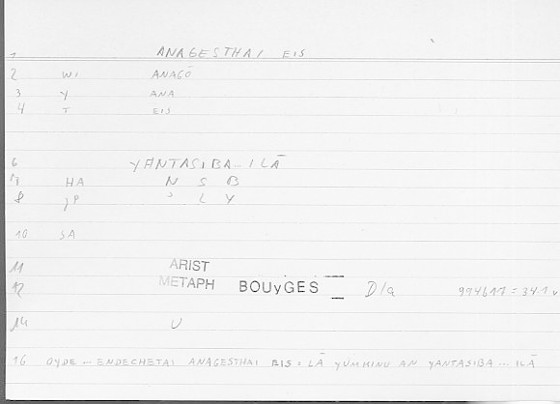 1 ANAGESTHAI EIS
2 WI ANAGŌ
3 Y ANA
4 T EIS
6 YANTASIBA – ILĀ
7 HA N S B
8 JP ʾ L Y
10 SA
11 ARIST
12 METAPH BOUyGES D/a
14 U
16 OYDE – ENDECHETAI ANAGESTHAI EIS = LĀ YUMKINU AN YANTASIBA ... ILĀ